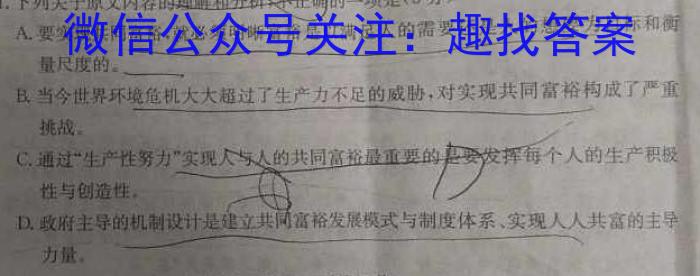 1.下列关于原文内容的理解和分析,不正确的一项是(3分
微信公众号关注：趣找答案
A.要实现共同富裕,就必须明晰富裕是以满足人的需要
和衡
量尺度的。
B.当今世界环境危机大大超过了生产力不足的威胁,对实现共同富裕构成了严重
挑战。
C.通过“生产性努力”实现人与人的共同富裕最重要的是要发挥每个人的生产积极
性与创造性。
D.政府主导的机制设计是建立共同富裕发展模式与制度体系、实现人人共富的主导
力量。